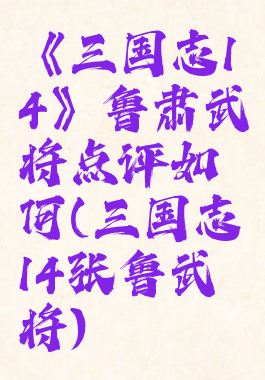 《三国志1
4》鲁肃武
将点评如
何(三国志
14张鲁武
将)